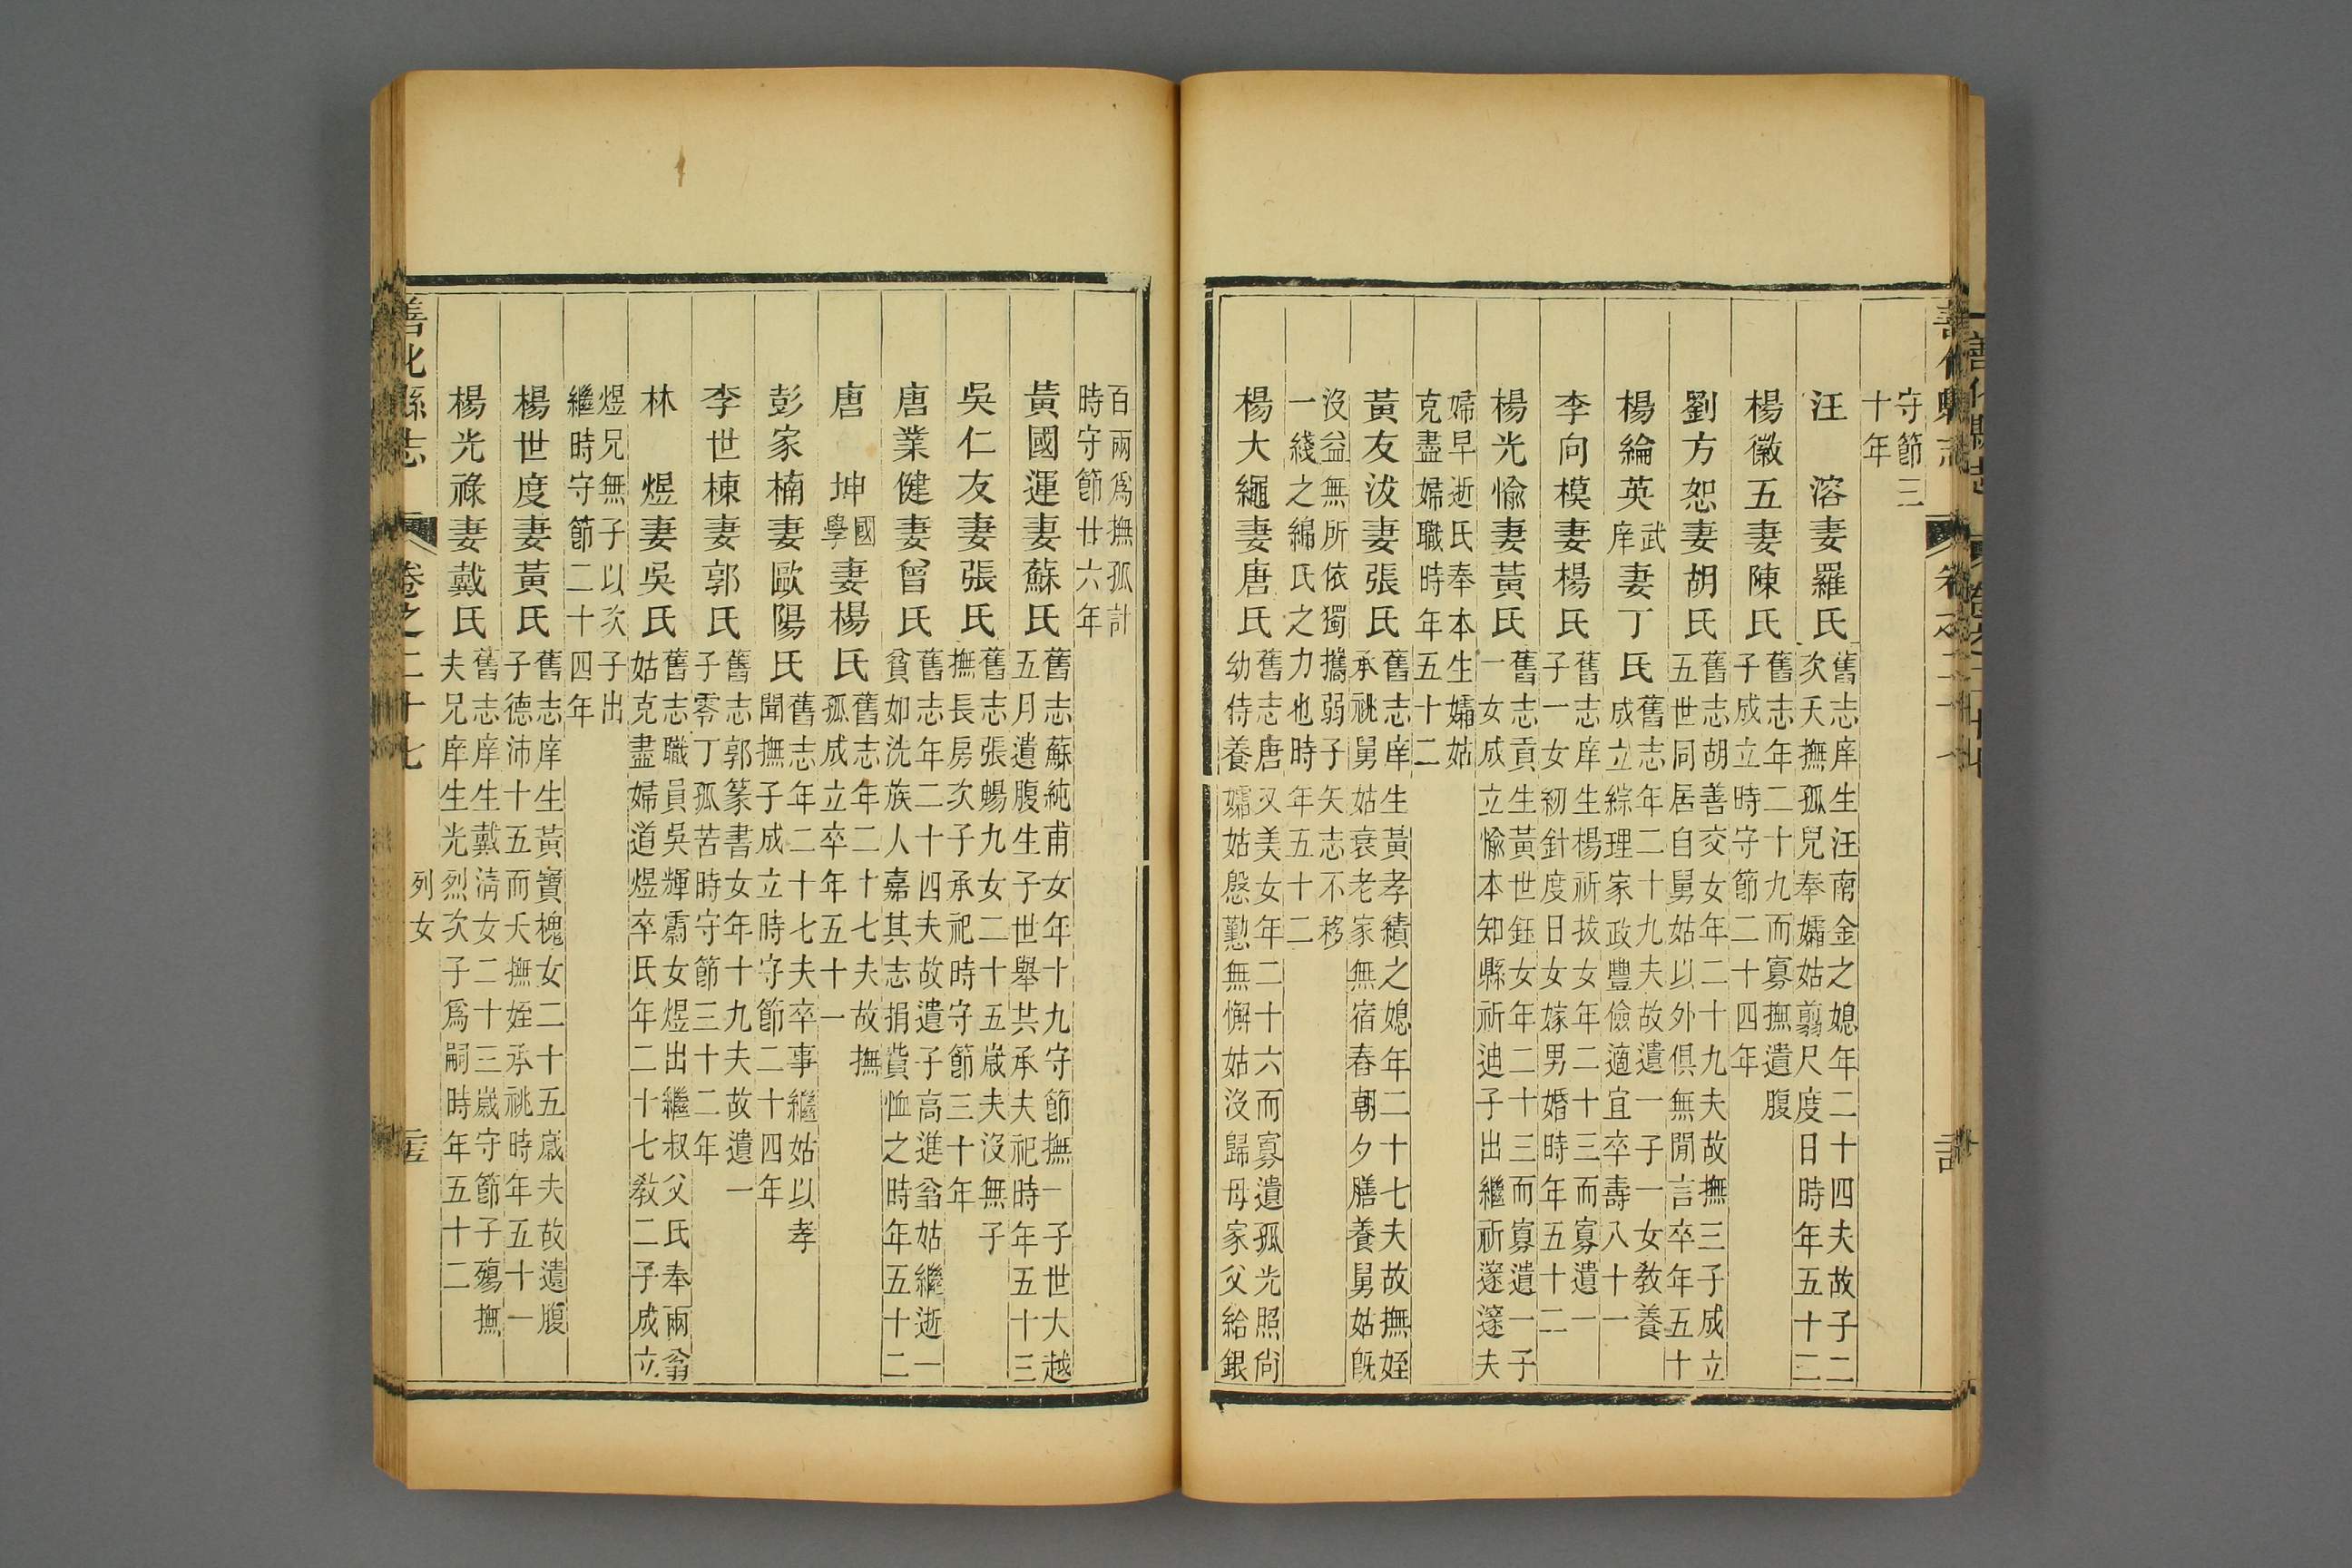 善化縣志
守節三
十年
汪　溶妻羅氏舊志庠生汪南金之媳年二十四夫故子二
次夭撫孤兒奉孀姑翦尺度日時年五十二
楊徽五妻陳氏舊志年二十九而寡撫遺腹
子成立時守節二十四年
劉方恕妻胡氏舊志胡善交女年二十九夫故撫三子成立
五世同居自舅姑以外俱無閒言卒年五十
楊綸英武庠妻丁氏舊志年二十九夫故遺一子一女教養
成立綜理家政豐儉適宜卒壽八十一
李向模妻楊氏舊志庠生楊祈拔女年二十三而寡遺一
子一女紉針度日女嫁男婚時年五十二
楊光愉妻黃氏舊志貢生黃世鈺女年二十三而寡遺一子
一女成立愉本知縣祈迪子出繼祈邃邃夫
婦早逝氏奉本生孀姑
克盡婦職時年五十二
黃友汷妻張氏舊志庠生黃孝績之媳年二十七夫故撫姪
承祧舅姑衰老家無宿舂朝夕膳養舅姑既
沒益無所依獨攜弱子矢志不移
一綫之綿氏之力也時年五十二
楊大繩妻唐氏舊志唐又美女年二十六而寡遺孤光照尙
幼侍養孀姑慇懃無懈姑沒歸母家父給銀
百兩爲撫孤計
時守節廿六年
黃國運妻蘇氏舊志蘇純甫女年十九守節撫一子世大越
五月遺腹生子世舉共承夫祀時年五十三
吳仁友妻張氏舊志張暢九女二十五歲夫沒無子
撫長房次子承祀時守節三十年
唐業健妻曾氏舊志年二十四夫故遺子高進翁姑繼逝一
貧如洗族人嘉其志捐貲恤之時年五十二
唐　坤國學妻楊氏舊志年二十七夫故撫
孤成立卒年五十一
彭家楠妻歐陽氏舊志年二十七夫卒事繼姑以孝
聞撫子成立時守節二十四年
李世棟妻郭氏舊志郭篆書女年十九夫故遺一
子零丁孤苦時守節三十二年
林　煜妻吳氏舊志職員吳輝霱女煜出繼叔父氏奉兩翁
姑克盡婦道煜卒氏年二十七教二子成立
煜兄無子以次子出
繼時守節二十四年
楊世度妻黃氏舊志庠生黃寶槐女二十五歲夫故遺腹
子德沛十五而夭撫姪承祧時年五十一
楊光祿妻戴氏舊志庠生戴淸女二十三歲守節子殤撫
夫兄庠生光烈次子爲嗣時年五十二
善化縣志　卷之二十七　列女